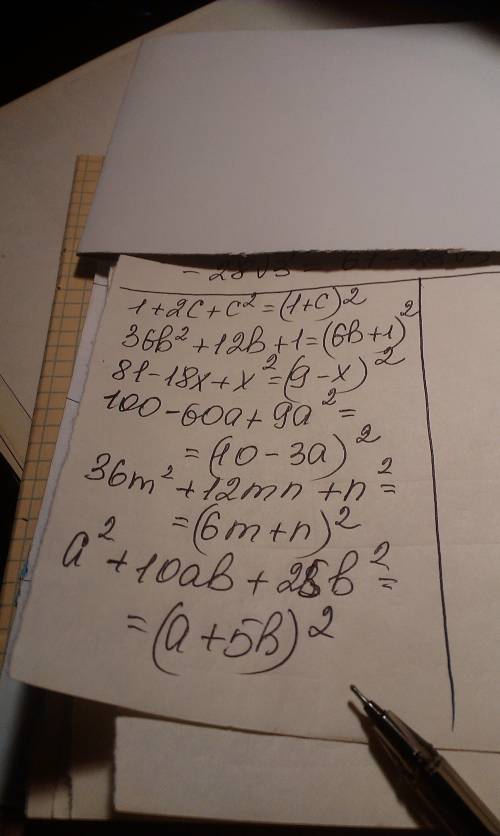 1+2c+c²=(1+c)²
36b²+12b+1=(6b+1)²
81-18x+x²=(9-x)²
100-60a+9a²=
=(10-3a)²
36m²+12mn+n²=
=(6m+n)²
a²+10ab+25b²=
=(a+5b)²